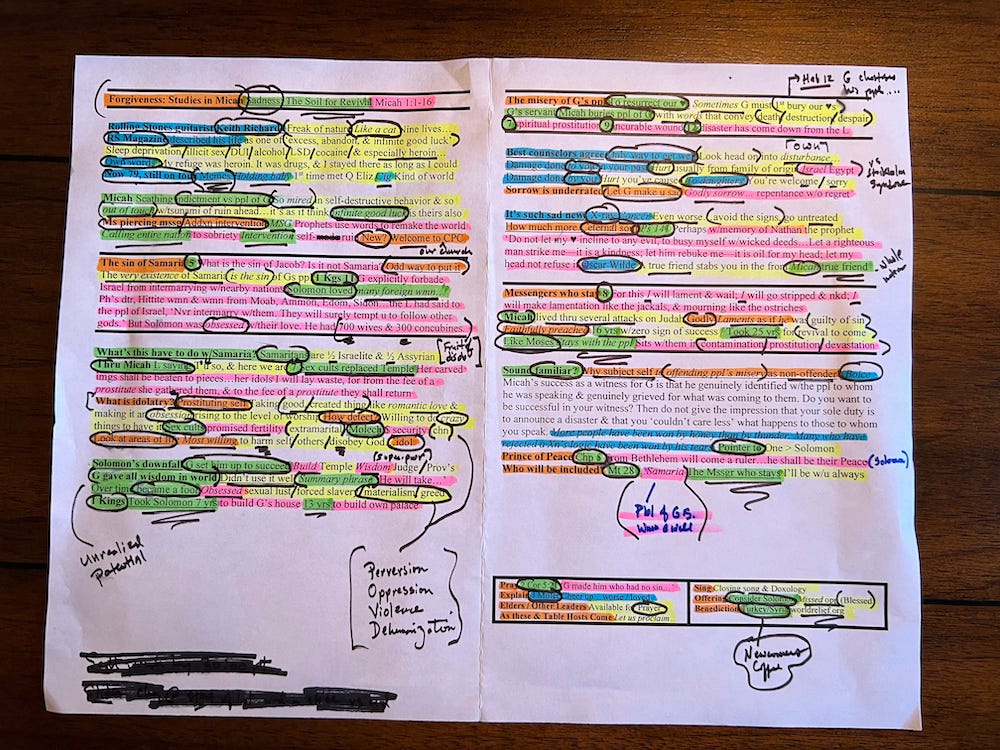 Forgiveness: Studies in Micah Sadness The Soil for Revival Micah 1:1-16
Rolling Stones guitarist Keith Richard Freak of nature Like a cat nine lives…
RS Magazine described his life as one of excess, abandon, & infinite good luck
Sleep deprivation illicit sex DUI alcohol LSD cocaine & especially heroin…
Own words My refuge was heroin. It was drugs, & I stayed there as long as I could
Now 79, still on tour Meme Holding baby 1st time met Q Eliz Cig Kind of world
Micah Scathing indictment vs ppl of G So mired in self-destructive behavior & so
out of touch w/tsunami of ruin ahead…it's as if think infinite good luck is theirs also
Ms piercing mssg Addxn intervention MSG Prophets use words to remake the world
Calling entire nation to sobriety Intervention self- ruin New? Welcome to CPC
our church
The sin of Samaria 5 What is the sin of Jacob? Is it not Samaria Odd way to put it
The very existence of Samaria is the sin of Gs ppl 1 Kgs 11 G explicitly forbade
Israel from intermarrying w/nearby nations Solomon loved many foreign wmn…
Ph's dtr, Hittite wmn & wmn from Moab, Ammon, Edom, Sidon…the L had said to
the ppl of Israel, 'Nvr intermarry w/them. They will surely tempt u to follow other
gods.' But Solomon was obsessed w/their love. He had 700 wives & 300 concubines.
What's this have to do w/Samaria? Samaritans are ½ Israelite & ½ Assyrian
Thru Micah L saying I so, & here we are 7 Sex cults replaced Temple Her carved
imgs shall be beaten to pieces…her idols I will lay waste, for from the fee of a
prostitute she gathered them, & to the fee of a prostitute they shall return
What is idolatry Prostituting self Taking good created thing like romantic love &
making it an obsession rising to the level of worship How detect Willing to do crazy
things to have it Sex cults promised fertility extramarital Molech $ security chn
Look at areas of life Most willing to harm self others disobey God idol
(super-pwr)
Solomon's downfall G set him up to succeed Build Temple Wisdom Judge Prov's
G gave all wisdom in world Didn't use it well Summary phrase He will take…'
Over time became a fool Obsessed sexual lust forced slavery materialism greed
1 Kings Took Solomon 7 yrs to build G's house 13 yrs to build own palace
Unrealized
Potential
Perversion
Oppression
Violence
Dehumanization
Heb 12 G chastens
his ppl....
The misery of G's ppl To resurrect our ♥ Sometimes G must 1st bury our ♥s
G's servant Micah buries ppl of G with words that convey death destruction despair
7 Spiritual prostitution 9 incurable wound 12 disaster has come down from the L
own
Best counselors agree Only way to get well Look head on into disturbance
Damage done to you Hurt usually from family of origin Israel Egypt
Damage done by you Hurt you've caused To daughters You're welcome sorry
Sorrow is underrated Let G make u sad Godly sorrow… repentance w/o regret
vs
Stockholm
Syndrome
It's such sad news X-ray cancer Even worse avoid the signs go untreated
How much more eternal soul Ps 141 Perhaps w/memory of Nathan the prophet
'Do not let my ♥ incline to any evil, to busy myself w/wicked deeds…Let a righteous
man strike me—it is a kindness; let him rebuke me—it is oil for my head; let my
head not refuse it Oscar Wilde A true friend stabs you in the front Micah true friend
Messengers who stay 8 For this I will lament & wail; I will go stripped & nkd; I
will make lamentation like the jackals, & mourning like the ostriches
Micah lived thru several attacks on Judah Godly Laments as if he was guilty of sin
Faithfully preached 16 yrs w/zero sign of success Took 25 yrs for revival to come
Like Moses Stays with the ppl Sits w/them in contamination prostitution devastation
Sound familiar? Why subject self to offending ppl's misery as non-offender Boice
Micah's success as a witness for G is that he genuinely identified w/the ppl to whom
he was speaking & genuinely grieved for what was coming to them. Do you want to
be successful in your witness? Then do not give the impression that your sole duty is
to announce a disaster & that you 'couldn't care less' what happens to those to whom
you speak. More people have been won by honey than by thunder. Many who have
rejected a Xn's logic have been won by his tears Pointer to One > Solomon
Prince of Peace Chp 5 From Bethlehem will come a ruler…he shall be their Peace (Solomon)
Who will be included Mt 28 Samaria The Msser who stays I'll be w/u always
Pbl of GS.
Wmn @ well
Pray 2 Cor 5:21 'G made him who had no sin…'
Explain 3 Mins Cheer up…worse / loved
Elders / Other Leaders Available for Prayer
As these & Table Hosts Come Let us proclaim
Sing Closing song & Doxology
Offering Consider Solomon Missed opp (Blessed)
Benediction Turkey/Syria worldrelief.org
Newcomers
Coffee